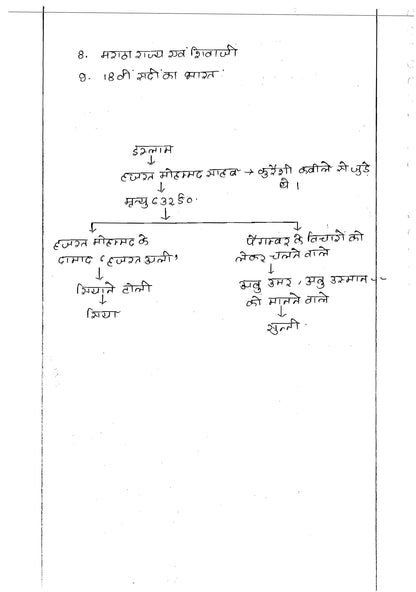 8. मराठा राज्य एवं शिवाजी
9. 18वीं सदी का भारत
इस्लाम
हजरत मोहम्मद साहब → कुरैशी कबीले से जुड़े
थे।
मृत्यु 632 ई०
हजरत मोहम्मद के
दामाद (हजरत अली)
पैगम्बर के विचारों को
लेकर चलने वाले
सियाने टोली
अबु उमर, अबु उस्मान --
को मानने वाले
सिया
सुन्नी